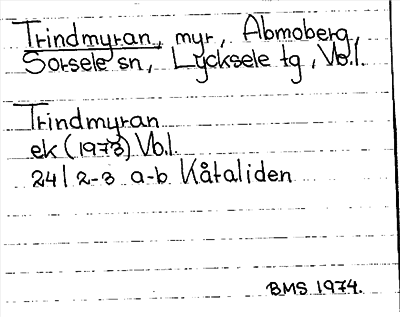 Trindmyran, myr, Abmoberg,
Sorsele sn, Lycksele tg, Vb.l.
Trindmyran
ek (1973) Vb.l.
24 I 2-3 a-b Kåtaliden
BMS 1974.